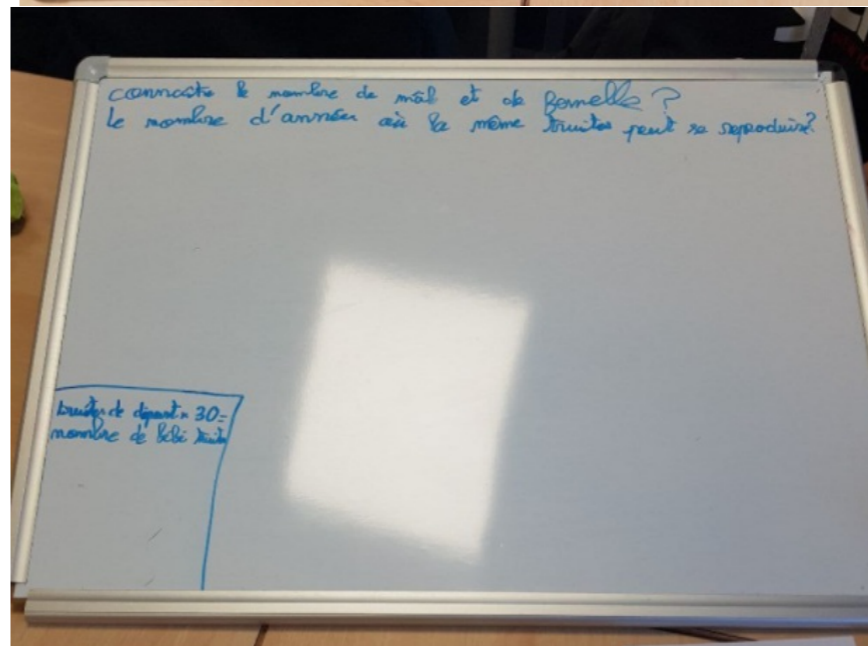 connaitre le nombre de mâl et de femelle ?
le nombre d'année où la même truites peut se reproduire?
truites de départ × 30 =
nombre de bébé truite